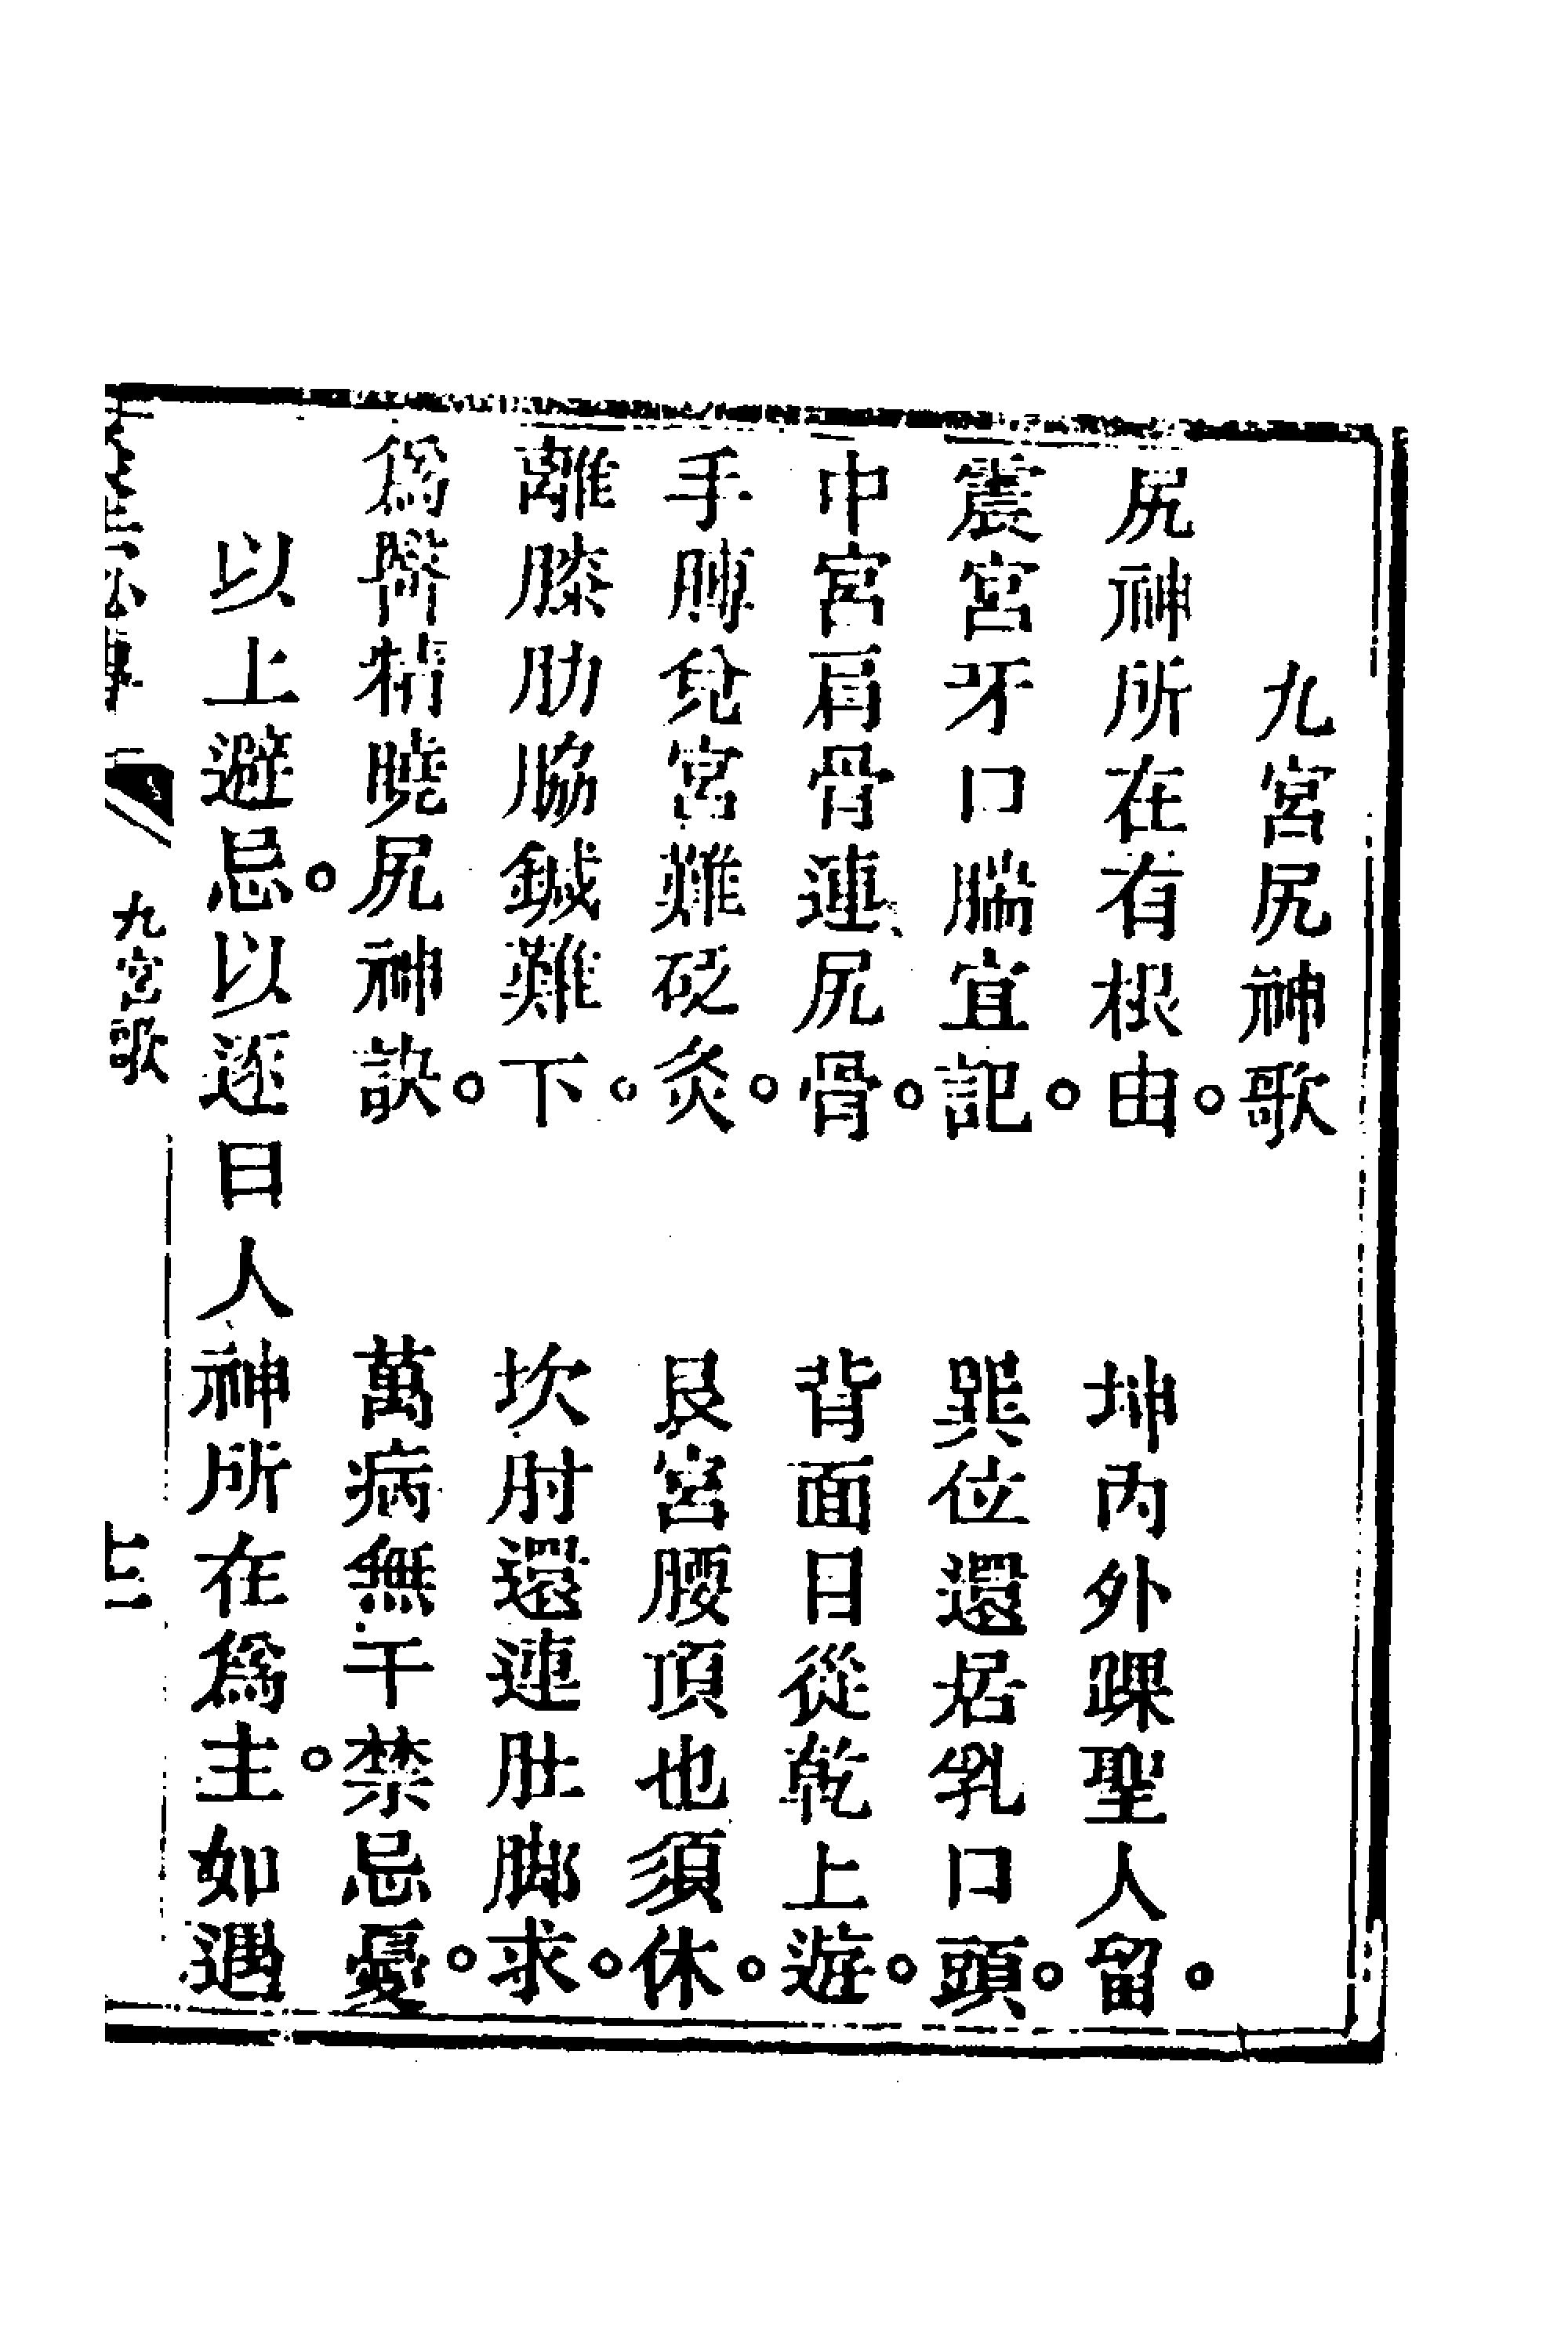 九宮尻神歌
尻神所在有根由。坤內外踝聖人留。
震宮牙口腨宜記。巽位還居乳口頭。
中宮肩骨連尻骨。背面目從乾上遊。
手膊兌宮難砭灸。艮宮腰項也須休。
離膝肋脇鍼難下。坎肘還連肚脚求。
爲醫精曉尻神訣。萬病無干禁忌憂。
以上避忌。以逐日人神所在爲主。如遇
九宮歌
十三